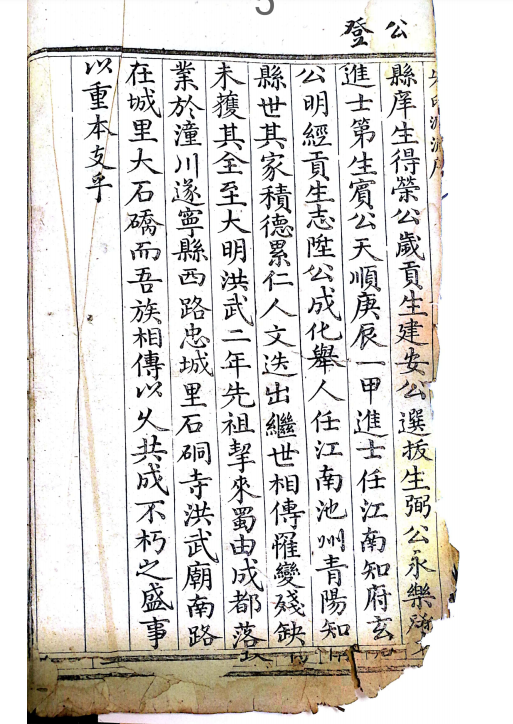 5
公登
縣庠生得榮公歲貢生建安公選拔生弼公永樂
進士第生賓公天順庚辰一甲進士任江南知府玄
公明經貢生志陞公成化舉人任江南池州青陽知
縣世其家積德累仁人文迭出繼世相傳罹變殘缺
未獲其全至大明洪武二年先祖挈來蜀由成都落
業於潼川遂寧縣西路忠城里石硐寺洪武廟南路
在城里大石礄而吾族相傳以久共成不朽之盛事
以重本支乎